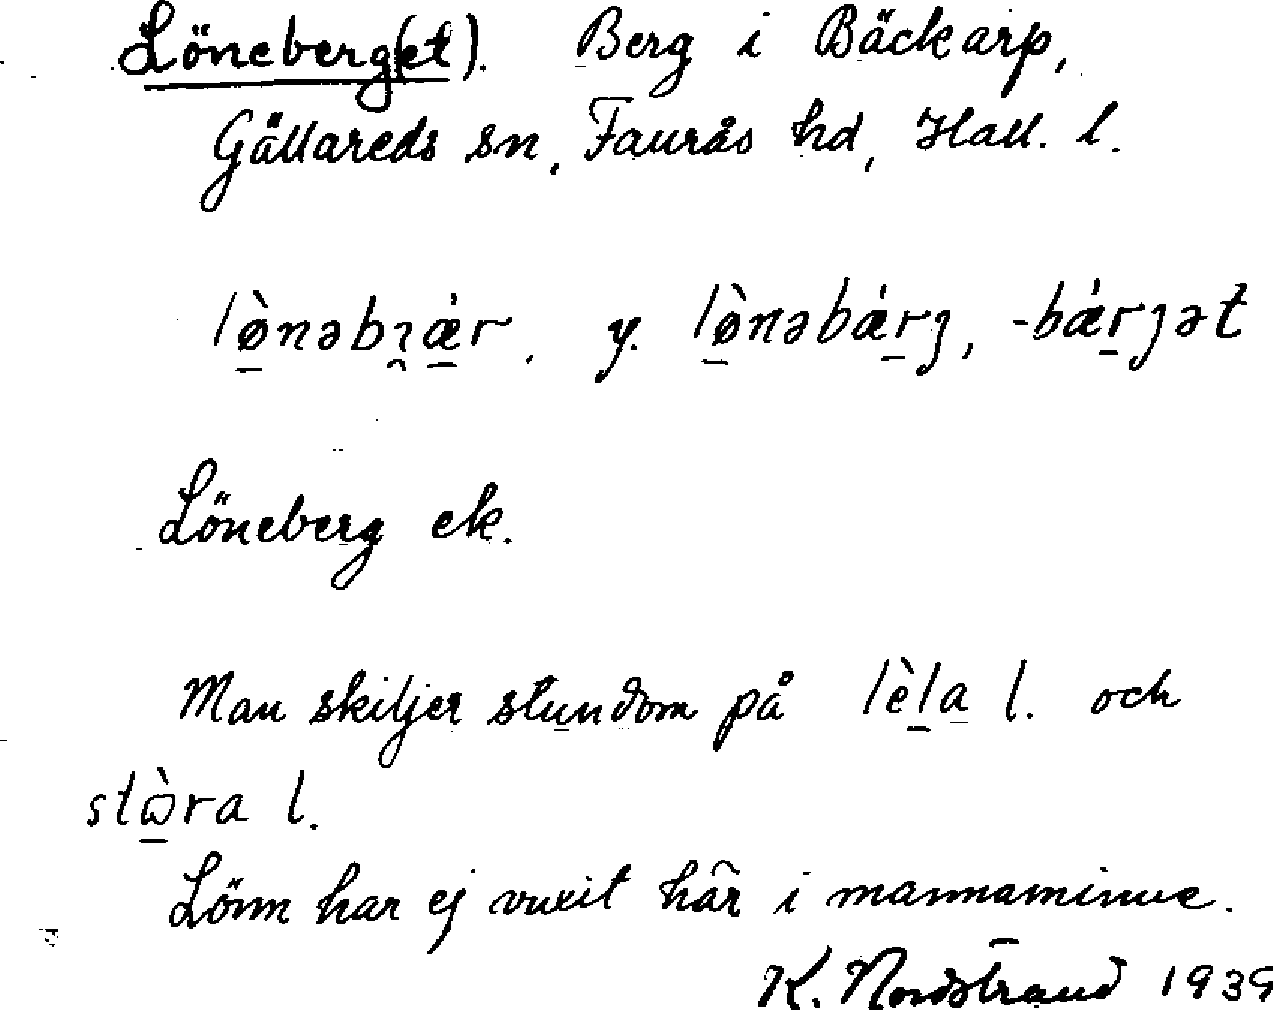 Löneberg(et). Berg i Bäckarp,
Gällareds sn, Faurås hd, Hall. l.
lø̀nəbı̯æ̀r. y. lø̀nəbǽrȷ, -bǽrȷət
Löneberg ek.
Man skiljer stundom på lèla l. och
stɷ̀ra l.
Lönn har ej vuxit här i mannaminne.
K. Nordstrand 1939